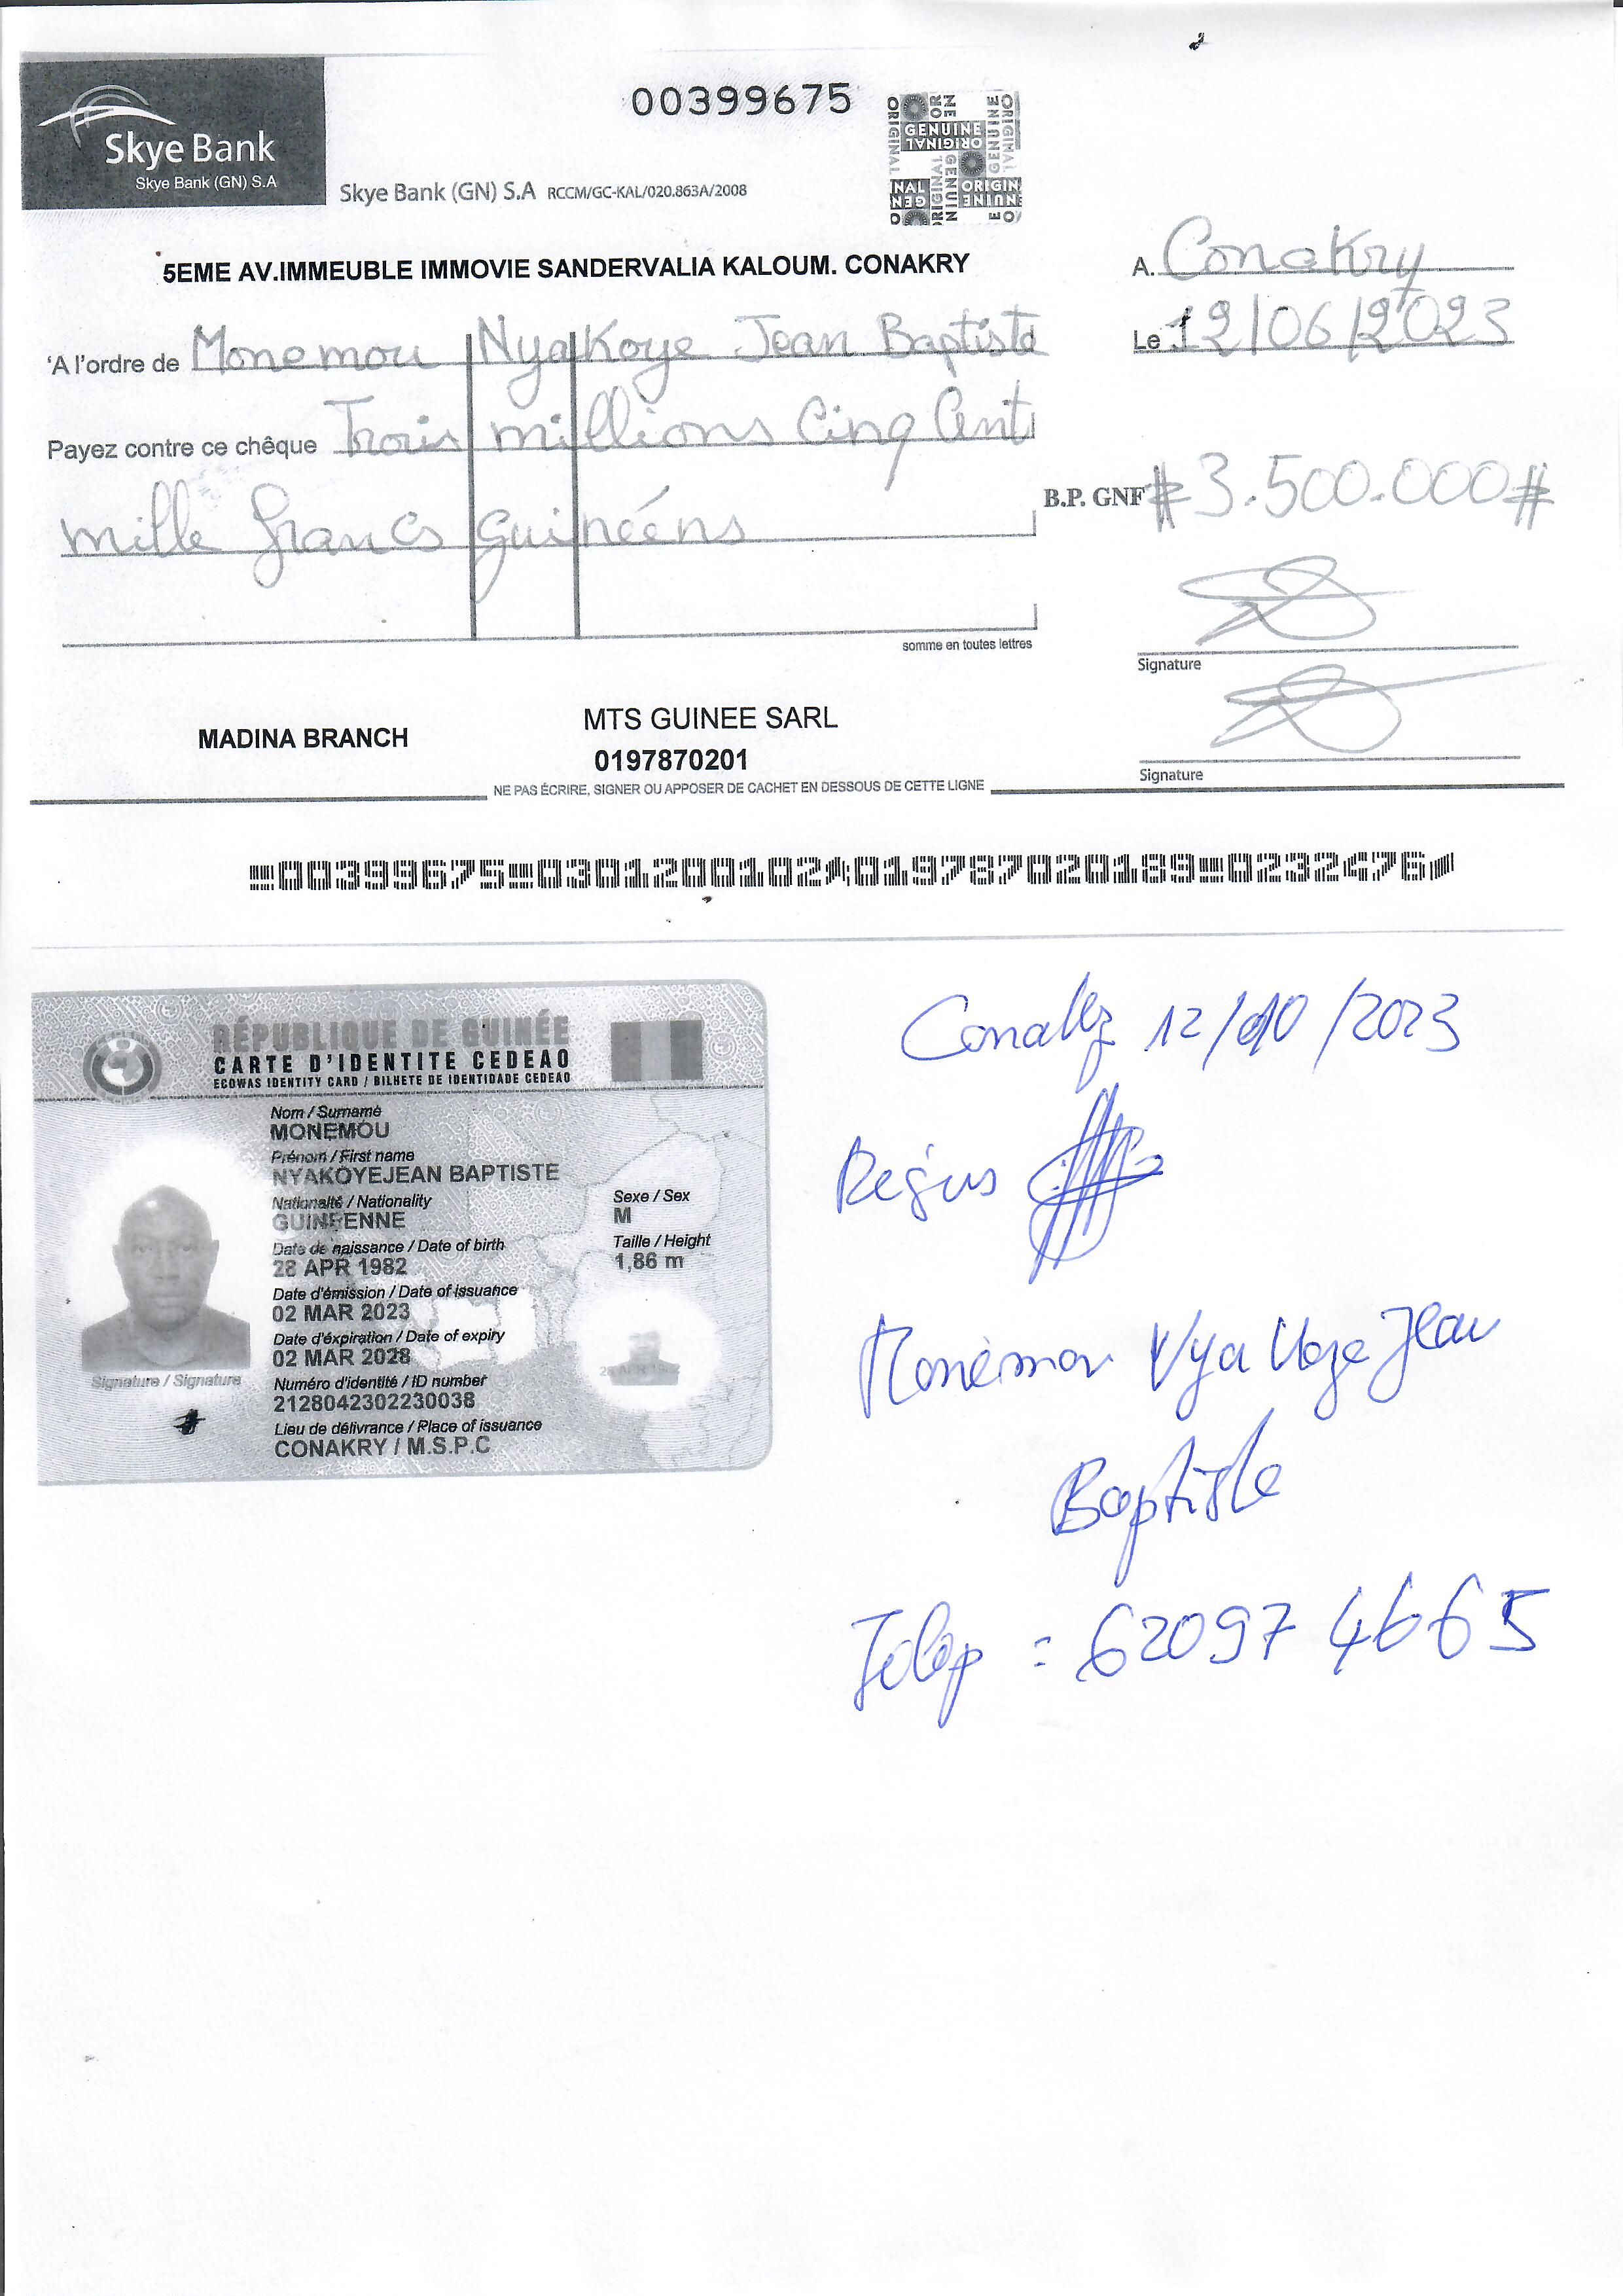 00399675
Skye Bank
Skye Bank (GN) S.A
Skye Bank (GN) S.A RCCM/GC-KAL/020.863A/2008
GENUINE
ORIGINAL
5EME AV.IMMEUBLE IMMOVIE SANDERVALIA KALOUM. CONAKRY
A. Conakry
Le 12/06/2023
'A l'ordre de Monemou Nyakoye Jean Baptiste
Payez contre ce chêque Trois millions Cinq Cent
mille francs guinéens
B.P. GNF # 3.500.000 #
somme en toutes lettres
Signature
Signature
MADINA BRANCH
MTS GUINEE SARL
0197870201
NE PAS ÉCRIRE, SIGNER OU APPOSER DE CACHET EN DESSOUS DE CETTE LIGNE
00399675 030120010 2 019787020189 0232476
RÉPUBLIQUE DE GUINÉE
CARTE D'IDENTITE CEDEAO
ECOWAS IDENTITY CARD / BILHETE DE IDENTIDADE CEDEAO
Nom / Surname
MONEMOU
Prénom / First name
NYAKOYEJEAN BAPTISTE
Nationalité / Nationality
GUINEENNE
Sexe / Sex
M
Date de naissance / Date of birth
28 APR 1982
Taille / Height
1,86 m
Date d'émission / Date of issuance
02 MAR 2023
Date d'éxpiration / Date of expiry
02 MAR 2028
Signature / Signature
Numéro d'identité / ID number
2128042302230038
Lieu de délivrance / Place of issuance
CONAKRY / M.S.P.C
12/ /2023
Reçus
Monémou Nyakoye Jean
Baptiste
: 62097 4665